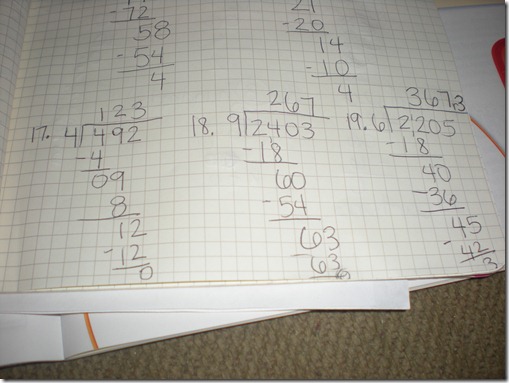 -72
58
-54
4
21
-20
14
-10
4
123
17. 4)492
-4
09
8
12
-12
0
267
18. 9)2403
-18
60
-54
63
63
0
3673
19. 6)2205
-18
40
-36
45
-42
3